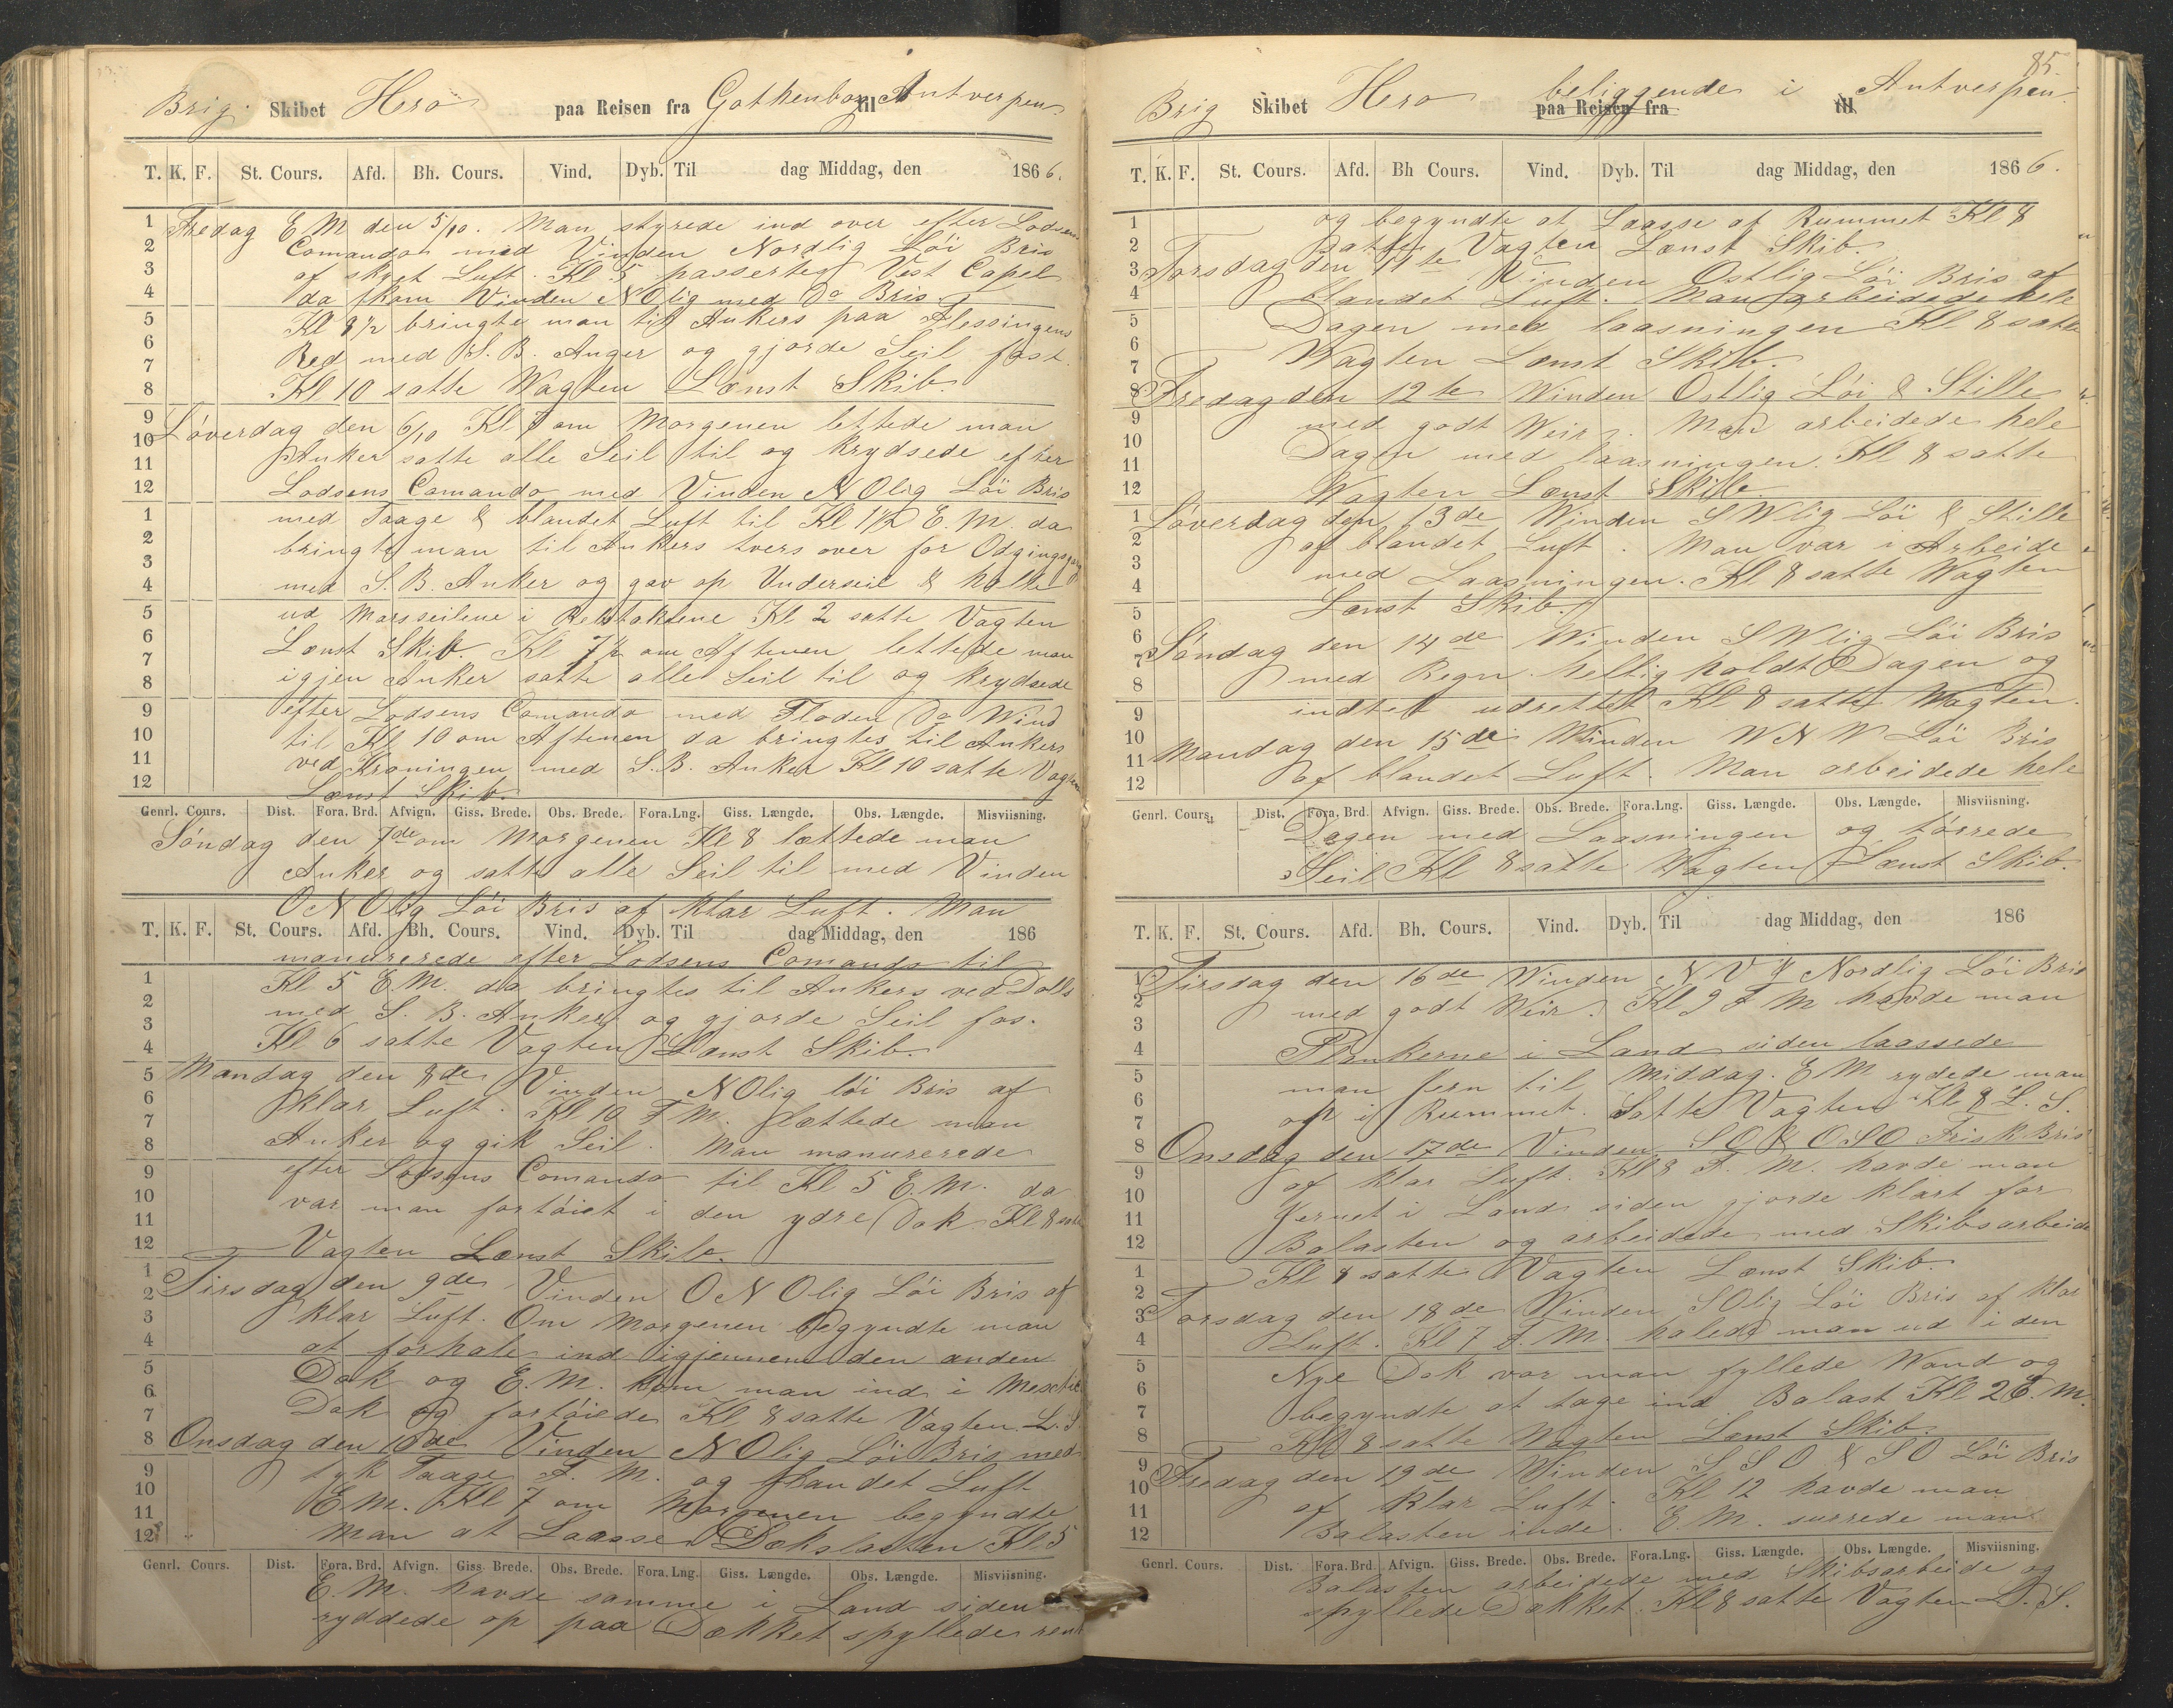 Brig Skibet Hero paa Reisen fra Gothenborg til Antverpen
T. K. F. St. Cours. Afd. Bh. Cours. Vind. Dyb. Til dag Middag, den 1866.
Fredag E M den 5/10. Man styrede ind over efter Lodsens
Comando med Vinden Nordlig Löi Bris
af skyet Luft. Kl 5 passertes Vest Capel
da kom Vinden N Olig med Do Bris
Kl 8 1/2 bringte man til Ankers paa Flessingens
Red med S. B. Anger og gjorde Seil fast.
Kl 10 satte Wagten Lænst Skib.
Löverdag den 6/10 Kl 7 om Morgenen lettede man
Anker satte alle Seil til og krydsede efter
Lodsens Comando med Vinden N Olig Löi Bris
med Taage & blandet Luft til Kl 1 1/2 E. M. da
bringte man til Ankers tvers over for
med S. B. Anker og gav op Underseil & holte
ud Marsseilene i Kl 2 satte Vagten
Lænst Skib. Kl 7 1/2 om Aftenen lettede man
igjen Anker satte alle Seil til og krydsede
efter Lodsens Comando med Floden Do Wind
til Kl 10 om Aftenen da bringtes til Ankers
ved Kroningen med S. B. Anker Kl 10 satte Vagten
Lænst Skib.
Genrl. Cours. Dist. Fora. Brd. Afvign. Giss. Brede. Obs. Brede. Fora.Lng. Giss. Længde. Obs. Længde. Misviisning.
Söndag den 7de om Morgenen Kl 8 lættede man
Anker og satte alle Seil til med Vinden
O N Olig Löi Bris af klar Luft. Man
T. K. F. St. Cours. Afd. Bh. Cours. Vind. Dyb. Til dag Middag, den 186
manurerede efter Lodsens Comando til
Kl 5 E. M. da bringtes til Ankers ved Dolls
med S. B. Anker og gjorde Seil fas.
Kl 6 satte Vagten Lænst Skib.
Mandag den 8de Vinden N Olig löi Bris af
klar Luft. Kl 10 F M. lættede man
Anker og gik Seil. Man manurerede
efter Lodsens Comando til Kl 5 E. M. da
var man fortöiet i den ydre Dok Kl 8 satte
Vagten Lænst Skib.
Tirsdag den 9de Vinden O N Olig Löi Bris af
klar Luft. Om Morgenen begyndte man
at forhale ind igjennem den anden
Dok og E. M. kom man ind i
Dok og fortöiede Kl 8 satte Vagten L. S
Onsdag den 10de Vinden N Olig Löi Bris med
tyk Taage F. M. og blandet Luft
E. M. Kl 7 om Morgenen begyndte
man at Laasse Dækslasten Kl 5
Genrl. Cours. Dist. Fora. Brd. Afvign. Giss. Brede. Obs. Brede. Fora. Lng. Giss. Længde. Obs. Længde. Misviisning.
E. M. havde samme i Land siden
ryddede op paa Dækket spyllede rent
85.
Brig Skibet Hero beliggende i Antverpen.
paa Reisen fra til
T. K. F. St. Cours. Afd. Bh Cours. Vind. Dyb. Til dag Middag, den 1866.
og begyndte at Laasse af Rummet Kl 8
satte Vagten Lænst Skib.
Torsdag den 11te Vinden Ostlig Löi Bris af
blandet Luft. Man arbeidede hele
Dagen med laasningen Kl 8 satte
Wagten Lænst Skib.
Fredag den 12te Winden Ostlig Löi & Stille
med godt Weir. Man arbeidede hele
Dagen med laasningen. Kl 8 satte
Wagten Lænst Skib.
Löverdag den 13de Winden S Wlig Löi & Stille
af blandet Luft. Man var i Arbeide
med Laasningen. Kl 8 satte Wagten
Lænst Skib.
Söndag den 14de Winden S Wlig Löi Bris
med Regn. helligholdt Dagen og
indtet udrettet Kl 8 satte Wagten.
Mandag den 15de Winden W N W Löi Bris
af blandet Luft. Man arbeidede hele
Genrl. Cours. Dist. Fora. Brd. Afvign. Giss. Brede. Obs. Brede. Fora.Lng. Giss. Længde. Obs. Længde. Misviisning.
Dagen med Laasningen og törrede
Seil Kl 8 satte Wagten Lænst Skib.
T. K. F. St. Cours. Afd. Bh. Cours. Vind. Dyb. Til dag Middag, den 186
Tirsdag den 16de Winden N V & Nordlig Löi Bris
med godt Weir. Kl 9 F M havde man
Plankerne i Land siden laassede
man Jern til Middag. E M rydede man
op i Rummet. Satte Vagten Kl 8 L. S.
Onsdag den 17de Vinden S O & O S O Frisk Bris
af klar Luft. Kl 8 F. M. havde man
Jernet i Land siden gjorde klart for
Balasten og arbeidede med Skibsarbeide
Kl 8 satte Vagten Lænst Skib.
Torsdag den 18de Winden S Olig Löi Bris af klar
Luft. Kl 7 F. M. halede man ud i den
Nye Dok var man fyllede Wand og
begyndte at tage ind Balast Kl 2 E. M.
Kl 8 satte Wagten Lænst Skib.
Fredag den 19de Winden S S O & S O Löi Bris
af klar Luft. Kl 12 havde man
Balasten inde. E. M. surrede man
Genrl. Cours. Dist. Fora. Brd. Afvign. Giss. Brede. Obs. Brede. Fora.Lng. Giss. Længde. Obs. Længde. Misviisning.
Balasten arbeidede med Skibsarbeide og
spyllede Dækket. Kl 8 satte Vagten L. S.